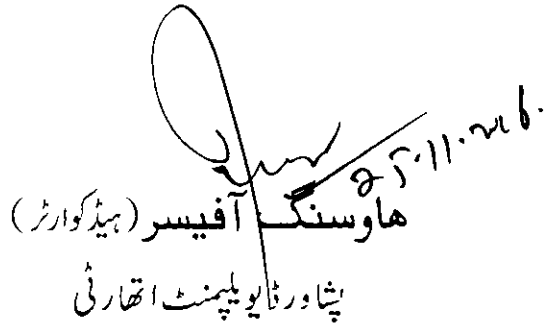 25.11.2016.
هاوسنگ آفیسر (ہیڈکوارٹر)
پشاور ڈیویلپمنٹ اتھارٹی